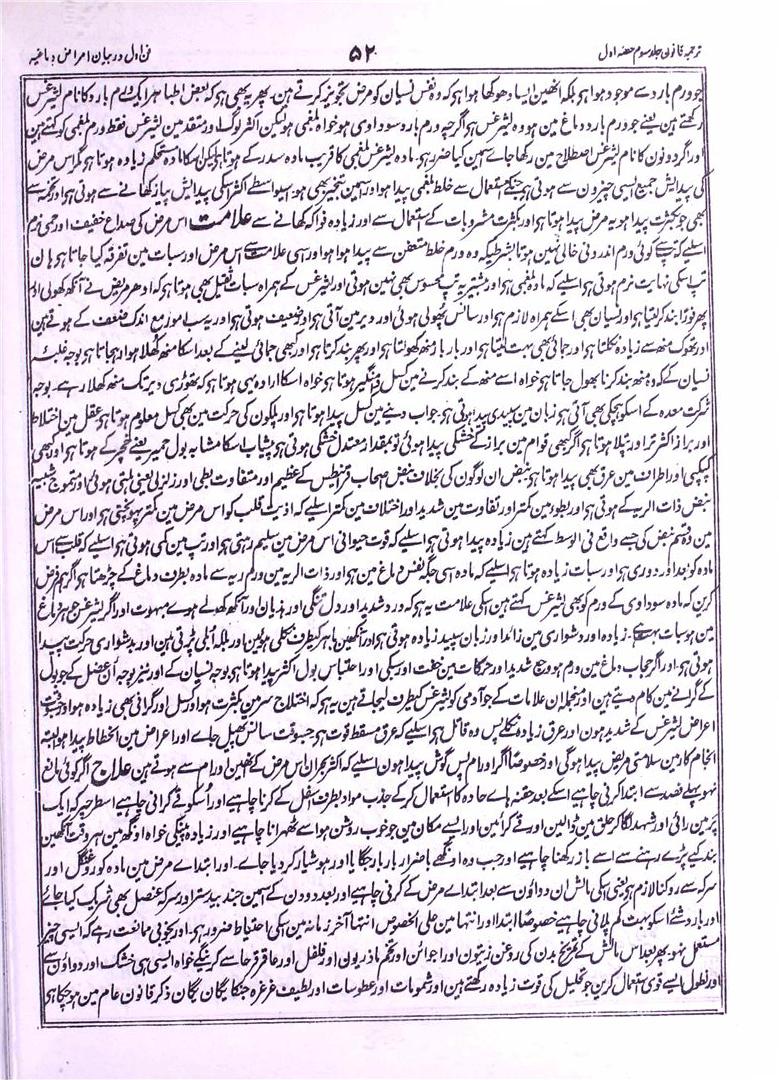 ترجمہ قانون جلد سوم حصہ اول ۵۲ فن اول در بیان امراض دماغیہ
جو ورم بارد سے موجود ہوا ہو بلکہ انھین ایسا دھوکھا ہوا ہو کہ وہ نفس نسیان کو مرض تجویز کرتے ہین۔ پھر یہ بھی ہو کہ بعض اطبا ہر ایک ورم بارد کا نام لیثرغس
رکھتے ہین یعنے جو ورم بارد دماغ مین ہو وہ لیثرغس ہو اگرچہ ورم بارد سوداوی ہو خواہ بلغمی ہو لیکن اکثر لوگ اور متقدمین لیثرغس فقط ورم بلغمی کو کہتے ہین
اور اگر دونون کا نام لیثرغس اصطلاح مین رکھا جائے اسمین کیا ضرر ہو۔ مادہ لیثرغس بلغمی کا قریب مادہ سدر کے ہوتا ہو لیکن اسکا مادہ مستحکم زیادہ ہوتا ہو مگر اس مرض
کی پیدایش جمیع ایسی چیزون سے ہوتی ہو جنکے استعمال سے خلط بلغمی پیدا ہو اور اسمین تبخیر بھی ہو اسیواسطے اکثر اسکی پیدایش پیاز کھانے سے ہوتی ہو اور تخمہ سے
بھی جو بکثرت پیدا ہو یہ مرض پیدا ہوتا ہو اور بکثرت مشروبات کے استعمال سے اور زیادہ فواکہ کھانے سے علامت اس مرض کی صداع خفیف اور حمی نرم
اسلیے کہ کوئی ورم اندرونی خالی نہین ہوتا بشرطیکہ وہ ورم خلط متعفن سے پیدا ہوا ہو اور اسی علامت سے اس مرض اور سبات مین تفرقہ کیا جاتا ہو ہان
تپ اسکی نہایت نرم ہوتی ہو اسلیے کہ مادہ بلغمی ہو اور بیشتر یہ تپ محسوس بھی نہین ہوتی اور لیثرغس کے ہمراہ سبات ثقیل بھی ہوتا ہو کہ ادھر مریض نے آنکھ کھولی اور
پھر فوراً بند کر لیتا ہو اور نسیان بھی اسکے ہمراہ لازم ہو اور سانس پھولی ہوئی اور دیر مین آتی ہو اور ضعیف ہوتی ہو اور یہ سب امور مع اندک ضعف کے ہوتے ہین
اور تھوک منھ سے زیادہ نکلتا ہو اور جمائی بھی بہت لیتا ہو اور بار بار منھ کھولتا ہو اور پھر بند کرتا ہو اور کبھی جمائی لینے کے بعد اسکا منھ کھلا ہوا رہجاتا ہو بوجہ غلبہ
نسیان کے گویا وہ منھ بند کرنا بھول جاتا ہو خواہ اسے منھ کے بند کرنے مین کسل دامنگیر ہوتا ہو خواہ اسکا ارادہ یہی ہوتا ہو کہ تھوڑی دیر تک منھ کھلا رہے۔ بوجہ
شرکت معدہ کے اسکو ہچکی بھی آتی ہو زبان مین سپیدی پیدا ہوتی ہو جواب دینے مین کسل پیدا ہوتا ہو اور پلکون کی حرکت مین بھی کسل معلوم ہوتا ہو عقل مین اختلاط
اور براز اکثر تر اور پتلا ہوتا ہو اگر کبھی قوام مین براز کے خشکی پیدا ہوئی تو بمقدار معتدل خشکی ہوتی ہو پیشاب اسکا مشابہ بول حمیر یعنے خچر کے ہوتا ہو اور کبھی
کپکپی اور اطراف مین عرق بھی پیدا ہوتا ہو نبض ان لوگون کی بخلاف نبض صحاب قرانیطس کے عظیم اور متفاوت بطی اور زلزلی یعنی ہلتی ہوئی اور تموج شبیہ
نبض ذات الریہ کے ہوتی ہو اور بطو مین کمتر اور تفاوت مین شدید اور اختلاف مین کمتر اسلیے کہ اذیت قلب کو اس مرض مین کمتر پہونچتی ہو اور اس مرض
مین وہ قسم نبض کی جسے واقع فی الوسط کہتے ہین زیادہ پیدا ہوتی ہو اسلیے کہ قوت حیوانی اس مرض مین سلیم رہتی ہو اور تپ مین کمی ہوتی ہو اسلیے کہ قلب سے اس
مادہ کو بعد اور دوری ہو اور سبات زیادہ ہوتا ہو اسلیے کہ مادہ اسی جگہ نفس دماغ مین ہو اور ذات الریہ مین ورم ریہ سے مادہ بطرف دماغ کے چڑھتا ہو اگر ہم فرض
کرین کہ مادہ سوداوی کے ورم کو بھی لیثرغس کہتے ہین اسکی علامت یہ ہو کہ درد شدید اور دل تنگی اور ہذیان اور آنکھ کھولے ہوے مبہوت اور اگر لیثرغس جوہر دماغ
مین ہو سبات بہت زیادہ اور دشواری مین زائد اور زبان سپید زیادہ ہوتی ہو اور آنکھین باہر کیطرف نکلی ہوئین اور بلکہ اُبلی پڑتی ہین اور بدشواری حرکت پیدا
ہوتی ہو۔ اور اگر حجاب دماغ مین ورم ہو وجع شدید اور حرکات مین خفت اور سبکی اور احتباس بول اکثر پیدا ہوتا ہو بوجہ نسیان کے اور نیز بوجہ اُن عضل کے جو بول
کے گرانے مین کام دیتے ہین اور منجملہ ان علامات کے جو آدمی کو لیثرغس کیطرف لیجاتے ہین یہ ہو کہ اختلاج سر مین بکثرت ہو اور کسل اور گرانی بھی زیادہ ہو اور جسوقت
اعراض لیثرغس کے شدید ہون اور عرق زیادہ نکلے پس وہ قاتل ہو اسلیے کہ عرق مسقط قوت ہو جسوقت سانس پھیل جاے اور اعراض مین انحطاط پیدا ہو البتہ
انجام کار مین سلامتی مریض پیدا ہوگی اور خصوصاً اگر اورام پس گوش پیدا ہون اسلیے کہ اکثر بحران اس مرض کے انھین اورام سے ہوتے ہین علاج اگر کوئی مانع
نہو پہلے فصد سے ابتدا کرنی چاہیے اسکے بعد حقنہ ہاے حادہ کا استعمال کر کے جذب مواد بطرف سفل کے کرنا چاہیے اور اُسکو قے کرانی چاہیے اسطرحپر کہ ایک
پر مین رائی اور شہد لگا کر حلق مین ڈالین اور قے کرائین اور ایسے مکان مین جو خوب روشن ہو اسے ٹھہرانا چاہیے اور زیادہ پینکی خواہ اونگھ مین ہر وقت آنکھین
بند کیے پڑے رہنے سے اسے باز رکھنا چاہیے اور جب وہ اونگھے باضرار بار بار جگایا اور ہوشیار کر دیا جاے۔ اور ابتداے مرض مین مادہ کو روغن گل اور
سرکہ سے روکنا لازم ہو یعنی اسکی مالش ان دواؤن سے بعد ابتداے مرض کے کرنی چاہیے اور بعد دو دن کے اسمین جند بیدستر اور سرکہ عنصل بھی شریک کیا جائے
اور بارد شے اسکو بہت کم پلانی چاہیے خصوصاً ابتدا اور انتہا مین علی الخصوص انتہا آخر زمانہ مین اسکی احتیاط ضرور ہو۔ اور بخوبی ممانعت رہے کہ ایسی چیز
مستعمل نہو پھر بعد اس مالش کے تمریخ بدن کی روغن زیتون اور اجوائن اور تخم ماذریون اور فلفل اور عاقرقرحا سے کرینگے خواہ ایسی ہی خشک اور دواؤن سے
اور نطول ایسے قوی استعمال کرین جو تحلیل کی قوت زیادہ رکھتے ہین اور شمومات اور عطوسات اور لطیف غرغرہ جنکا یگان یگان ذکر قانون عام مین ہو چکا ہو